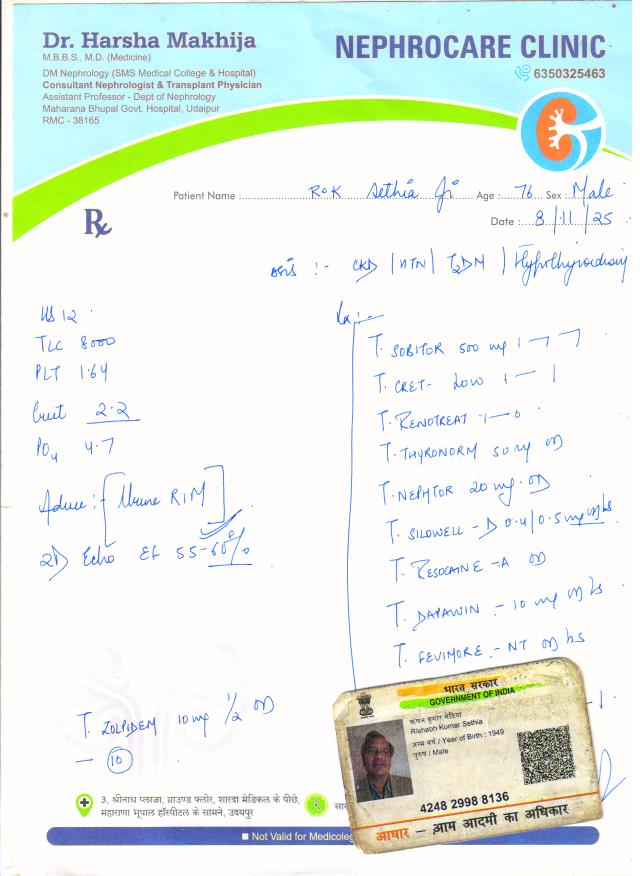 Dr. Harsha Makhija
M.B.B.S., M.D. (Medicine)
DM Nephrology (SMS Medical College & Hospital)
Consultant Nephrologist & Transplant Physician
Assistant Professor - Dept of Nephrology
Maharana Bhupal Govt. Hospital, Udaipur
RMC - 38165
NEPHROCARE CLINIC
6350325463
Patient Name : R.K Sethia Ji Age : 76 Sex : Male
Date : 8/11/25
Rx
:- CKD | HTN | T2DM | Hypothyroidism
12
TLC 8000
PLT 1.64
2.2
PO4 4.7
Advice :- [Urine R/M]
2D Echo EF 55-60%
Rx :-
T. SOBITOR 500 mg 1 - 1 - 1
T. CRET- LOW 1 - 1
T. RENOTREAT -1-0
T. THYRONORM 50 OD
T. NEPHTOR 20 mg. OD
T. SILOWELL - D 0.4/0.5 mg hs
T. RESOCAINE - A OD
T. DAPAWIN - 10 mg OD hs
T. FEVIMORE - NT OD hs
T. ZOLPIDEM 10 mg 1/2 OD
- 10
भारत सरकार
GOVERNMENT OF INDIA
Rishabh Kumar Sethia
जन्म वर्ष / Year of Birth : 1949
पुरुष / Male
4248 2998 8136
आधार - आम आदमी का अधिकार
3, श्रीनाथ प्लाजा, ग्राउण्ड फ्लोर, शारदा मेडिकल के पीछे,
महाराणा भूपाल हॉस्पीटल के सामने, उदयपुर
Not Valid for